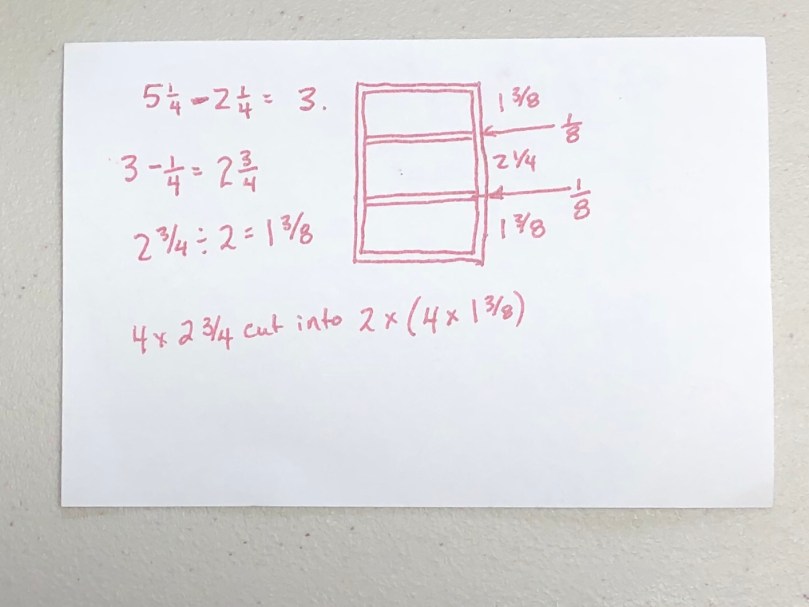 5 1/4 - 2 1/4 = 3.
3 - 1/4 = 2 3/4
2 3/4 ÷ 2 = 1 3/8
1 3/8
1/8
2 1/4
1/8
1 3/8
4 x 2 3/4 cut into 2 x (4 x 1 3/8)